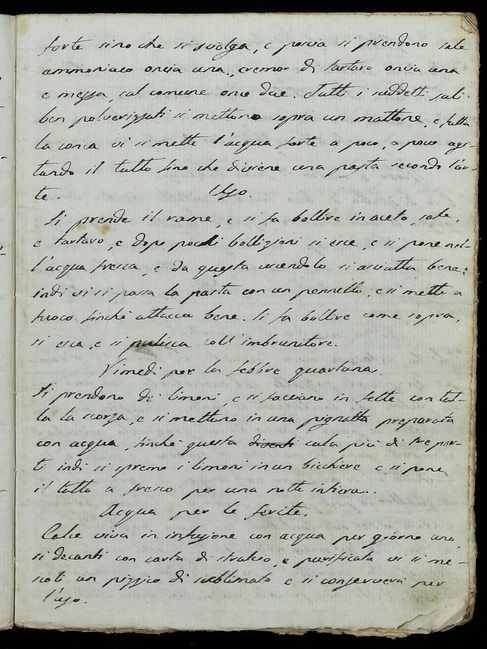 forte sino che si svolga, e poscia si prendono sale
ammoniaco oncia una, cremor di tartaro oncia una
e mezza sal comune once due. Tutti i suddetti sali
ben polverizzati si mettono sopra un mattone, e fatta
la conca vi si mette l'acqua forte a poco, a poco agi-
tando il tutto sino che diviene una pasta secondo l'ar-
te.
Uso
Si prende il rame, e si fa bollire in aceto, sale,
e tartaro, e dopo pochi bollizioni si esce, e si pone nel-
l'acqua fresca, e da questa uscendolo si asciutta bene;
indi vi si passa la pasta con un pennello, e si mette a
fuoco finchè attacca bene. Si fa bollire come sopra,
si esca, e si pulisca coll'imbrunitore.
Rimedi per la febbre quartana.
Si prendono de' limoni, e si facciano in fette con tut-
ta la scorza, e si mettono in una pignatta preparata
con acqua, finchè questa cala più di tre par-
ti indi si spreme i limoni in un bicchiere e si pone
il tutto a fresco per una notte intiera.
Acqua per le ferite.
Calce viva in infusione con acqua per giorno uno,
si decanti con carta di straccio, e purificata vi si me-
scoli un pizzico di sublimato e si conserverà per
l'uso.